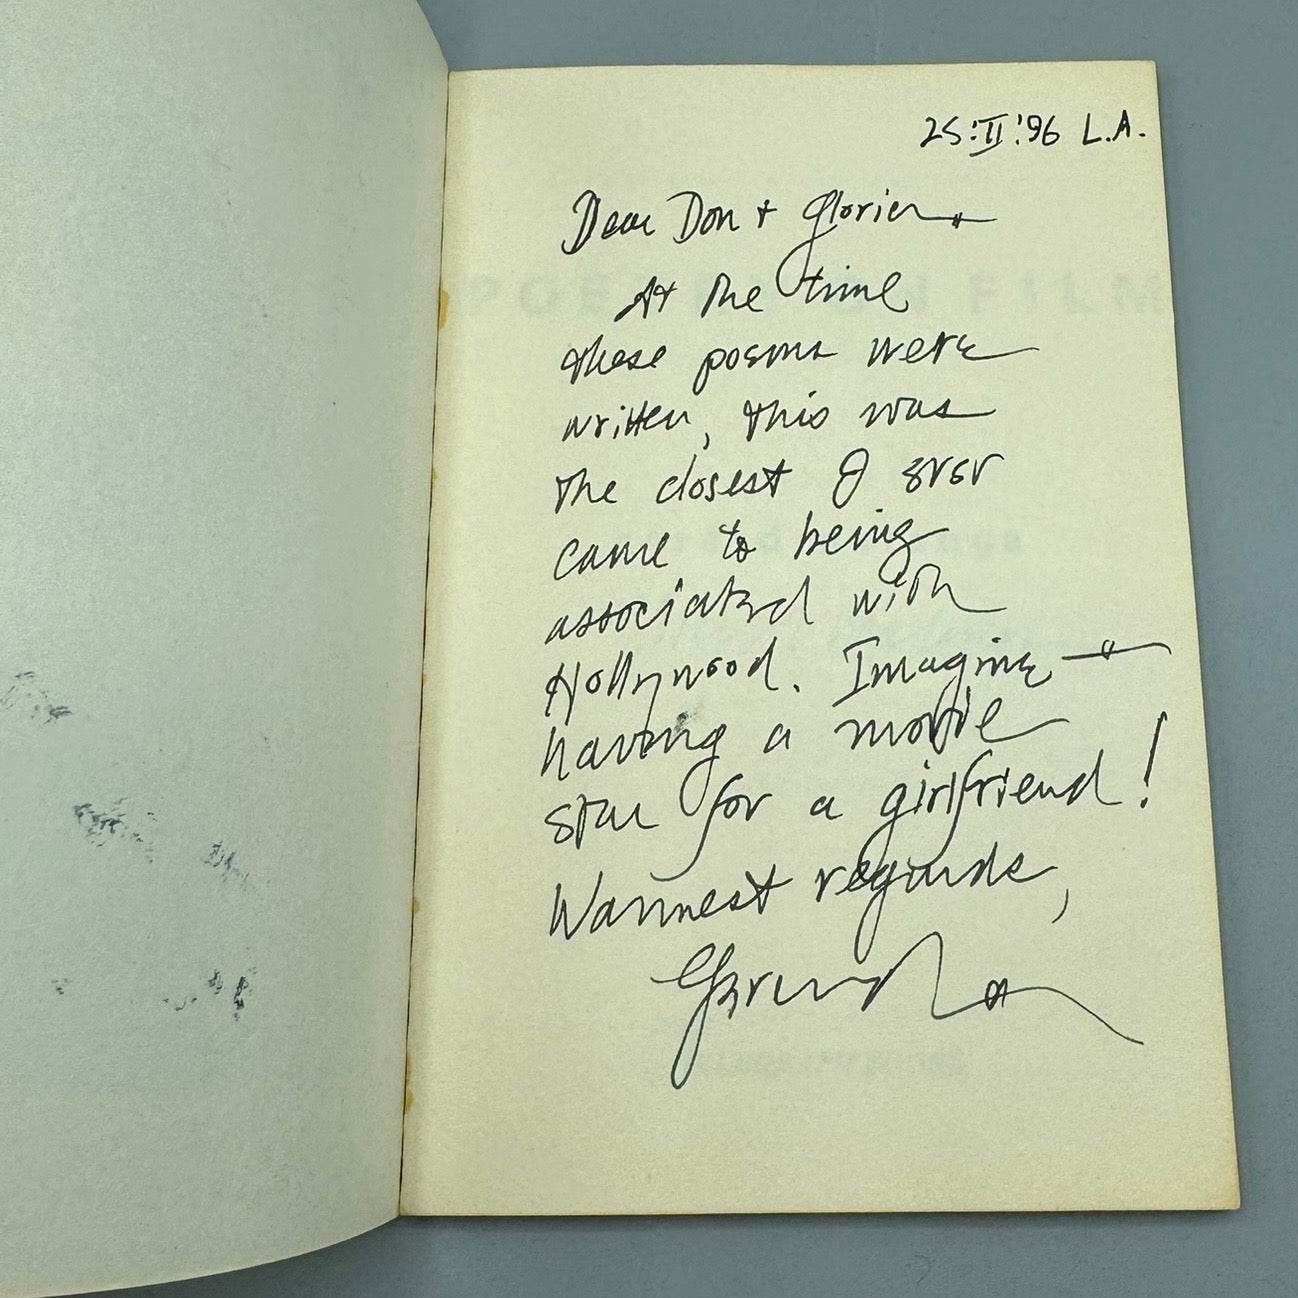 25:II:'96 L.A.
Dear Don + Glorien
At the time
these poems were
written, this was
the closest I ever
came to being
associated with
Hollywood. Imagine —
having a movie
star for a girlfriend!
Warmest regards,
Gerard